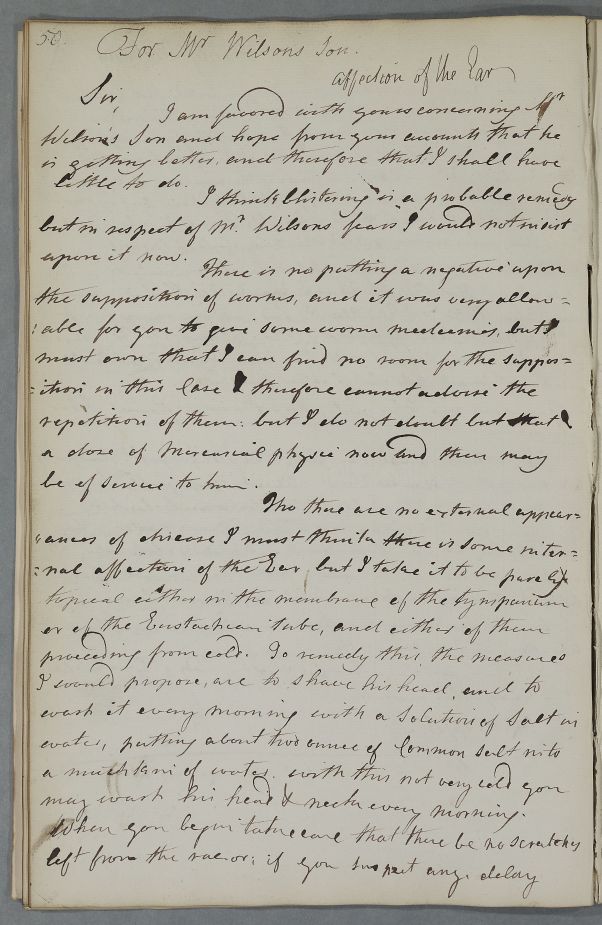 50.
For Mr Wilsons Son.
affection of the Ear
Sir,
I am favored with yours concerning Mr
Wilson's Son and hope from your accounts that he
is getting better, and therefore that I shall have
little to do.
I think blistering is a probable remedy
but in respect of Mr. Wilsons fears I would not insist
upon it now.
There is no putting a negative upon
the supposition of worms, and it was very allow=
:able for you to give some worm medecines, but I
must own that I can find no room for the suppos=
=ition in this Case & therefore cannot advise the
repetition of them: but I do not doubt but that
a dose of Mercurial physic now and then may
be of service to him.
Tho there are no external appear=
"ances of disease I must think there is some inter=
=nal affection of the Ear, but I take it to be purely
topical either in the membrane of the tympanum
or of the Eustachean tube, and either of them
proceeding from cold. To remedy this, the measures
I would propose, are to shave his head, and to
wash it every morning with a Solution of Salt in
water, putting about two ounces of Common salt into
a mutchkin of water. with this not very cold you
may wash his head & neck every morning.
When you begin take care that there be no scratches
left from the razor; if you suspect any delay